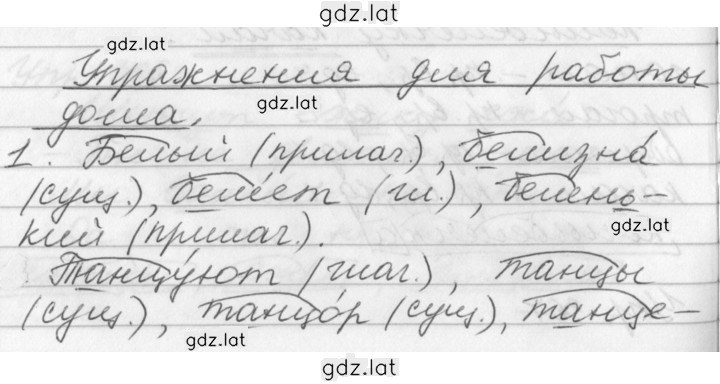 gdz.lat
gdz.lat
Упражнения для работы
gdz.lat
дома.
1. Белый (прилаг.), белизна́
(сущ.), беле́ет (гл.), белень-
gdz.lat
кий (прилаг.).
Танцу́ют (глаг.), танцы
(сущ.), танцо́р (сущ.), танце-
gdz.lat
gdz.lat